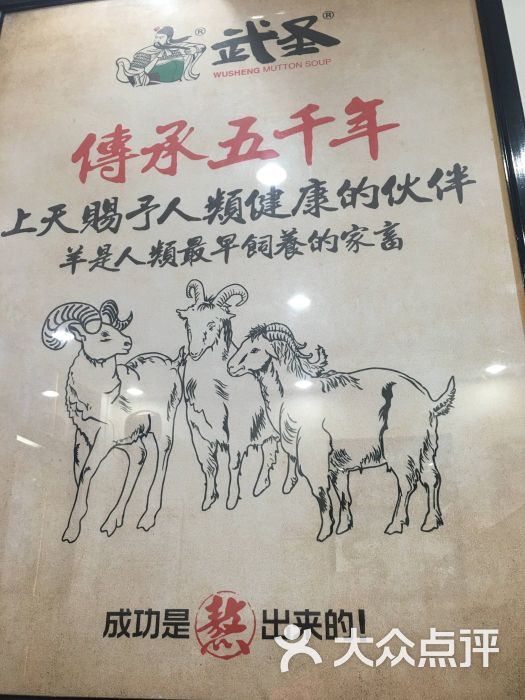 武圣®
®
WUSHENG MUTTON SOUP
傳承五千年
上天賜予人類健康的伙伴
羊是人類最早飼養的家畜
成功是熬出来的!
大众点评